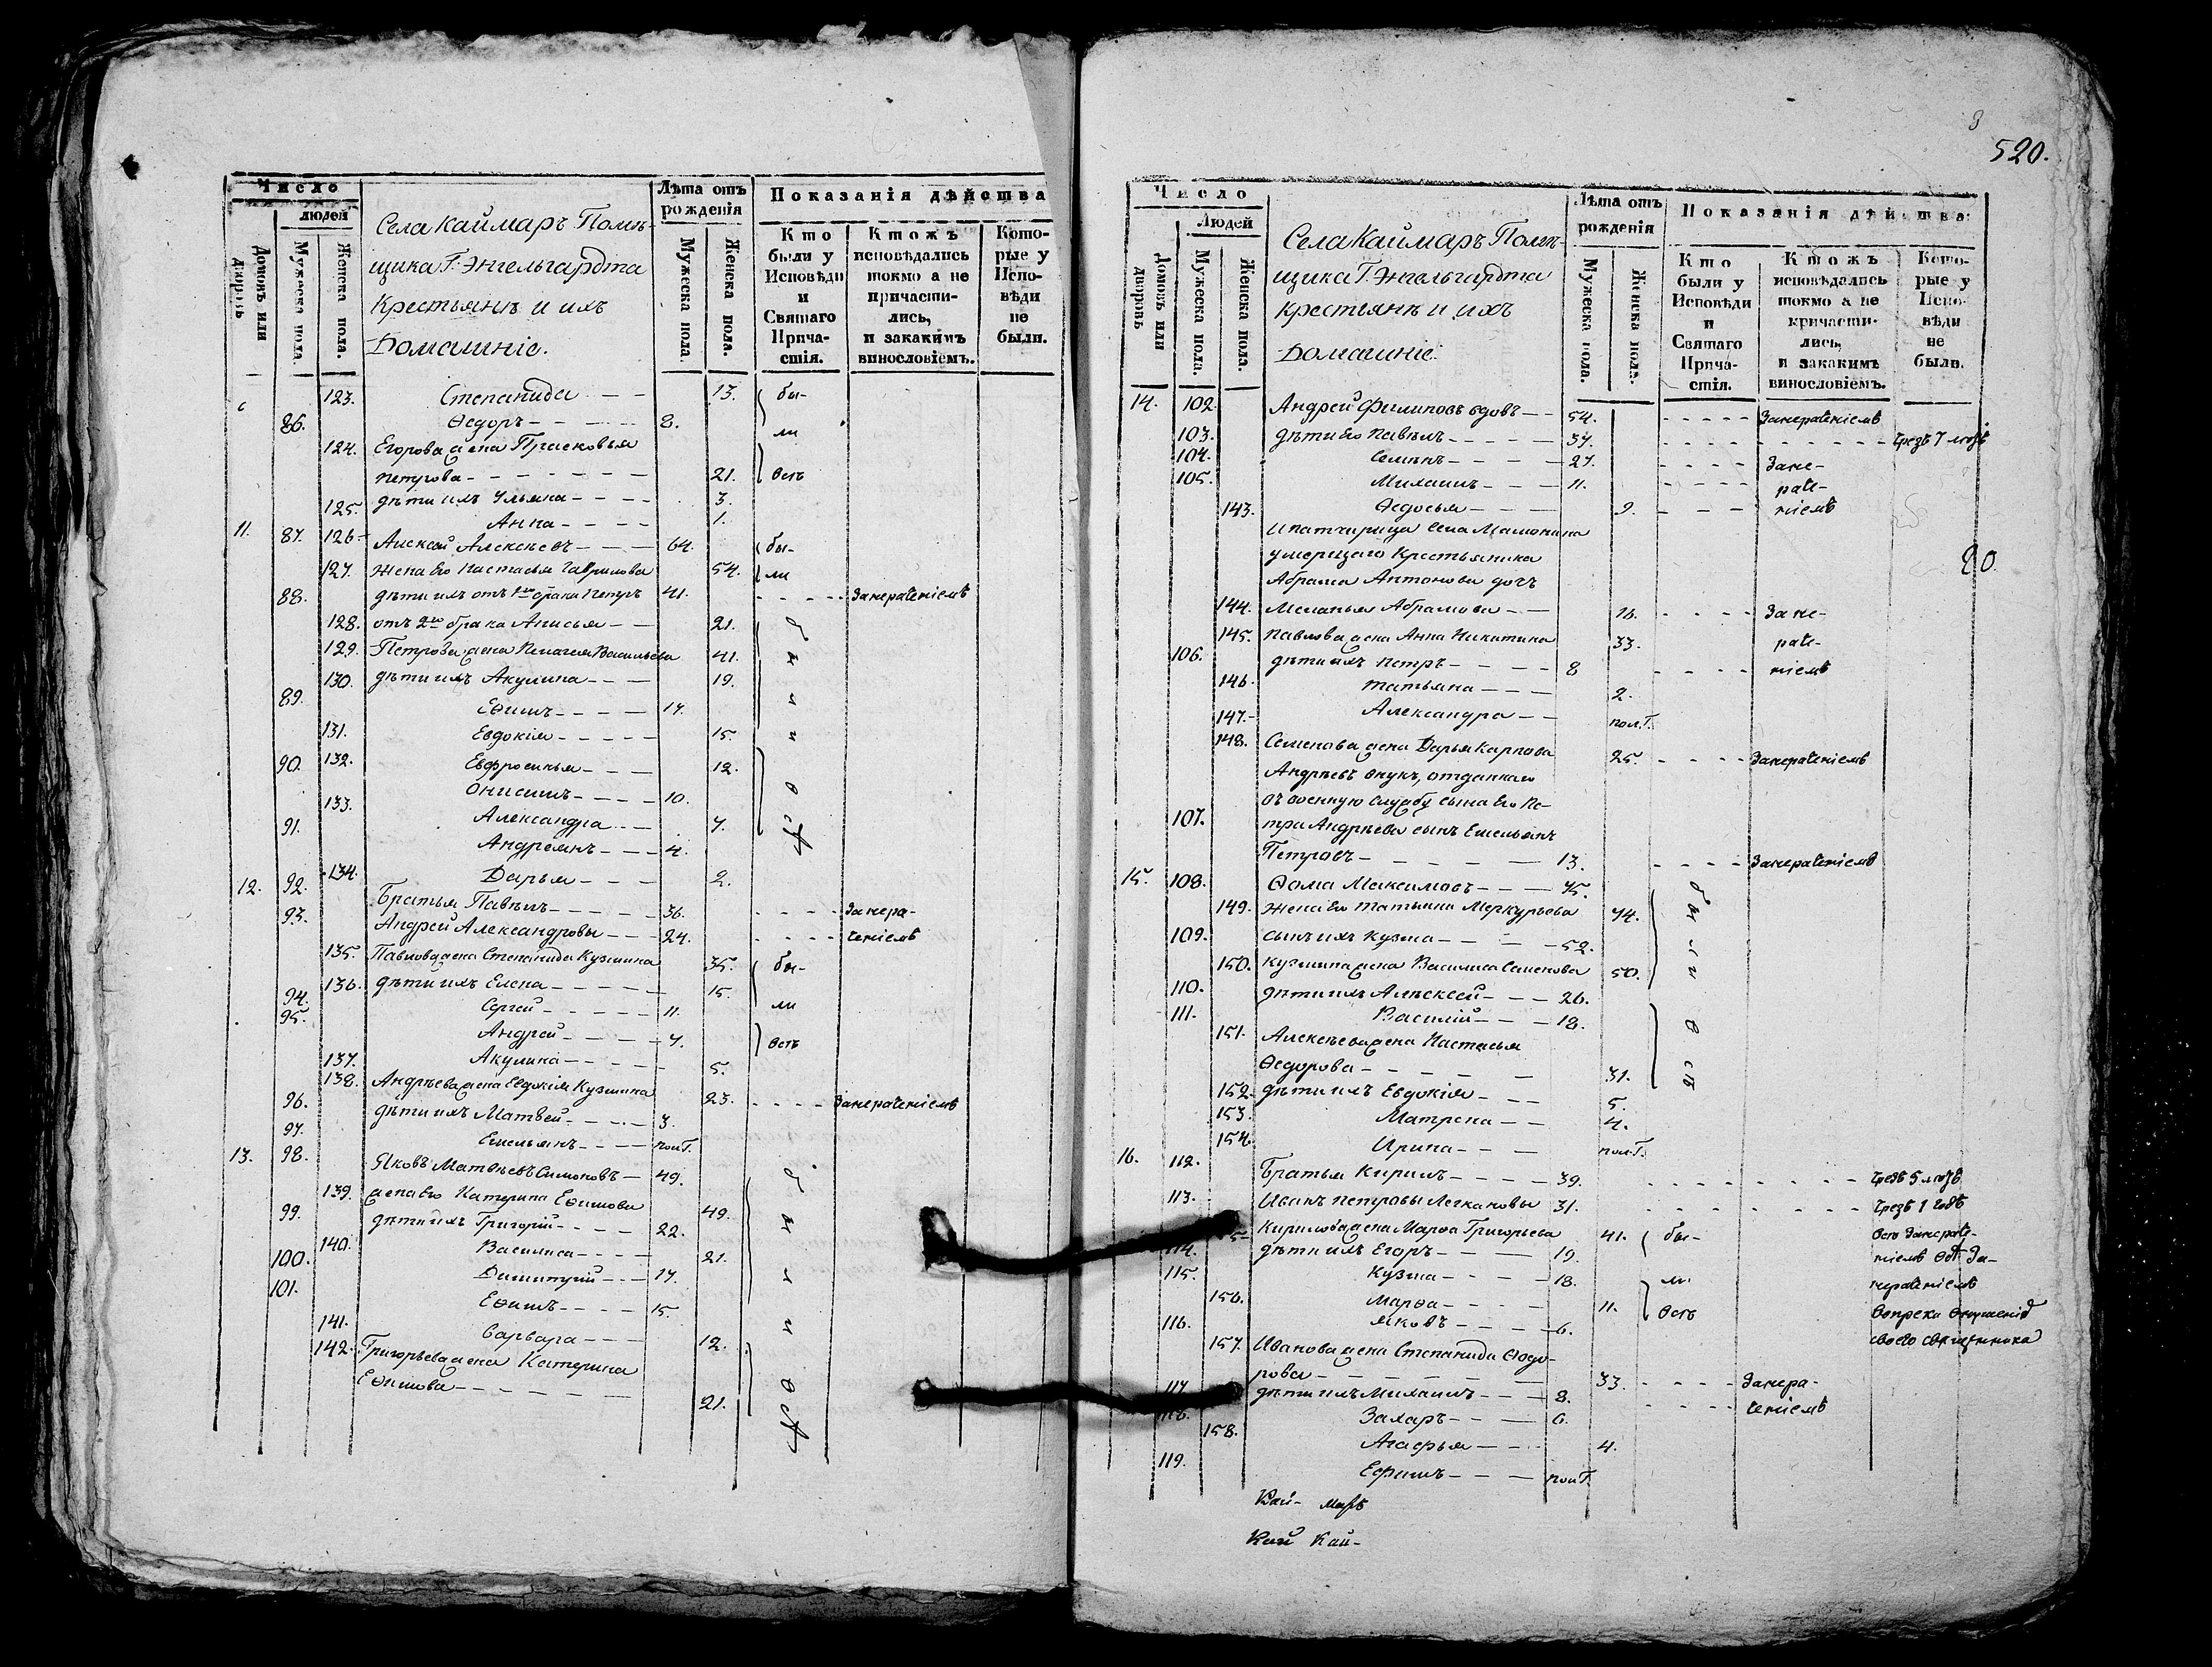 Число
людей
Домовъ или дворовъ
Мужеска пола.
Женска пола.
Села Каймаръ Помѣ-
щика Г. Энгельгардта
Крестьянѣ и ихъ
Домашніе.
Лѣта отъ рожденія
Мужеска пола.
Женска пола.
Показанія дѣйства
Кто были у Исповѣди и Святаго Прича-стія.
Ктожъ исповѣдались токмо а не причасти-лись, и закакимъ винословіемъ.
Кото-рые у Испо-вѣди не были.
123. Степанида — — 13. бы-
86. Ѳедоръ — — — 8. ли
124. Егорова жена Прасковья
Петрова — — — 21. всѣ
дѣти ихъ Ульяна — — 3.
125. Анна — — 1.
11. 87. 126. Алексей Алексѣевъ — — 64. бы-
127. Жена Его Настасья Гаврилова 54. ли
88. дѣти ихъ отъ 1го брака Петръ 41. — — занераченіемъ
128. отъ 2го брака Анисья — — 21. были
129. Петрова жена Пелагея Васильева 41.
130. дѣти ихъ Акулина — — 19.
89. Еѳимъ — — 17.
131. Евдокія — — 15.
90. 132. Евфросинья — — 12. всѣ
Онисимъ — — 10.
133. Александра — — 7.
91. Андреянъ — — 4.
134. Дарья — — 2.
12. 92. Братья Павелъ — — 36. — — занера-
93. Андрей Александровы — — 24. — — ченіемъ
135. Павлова жена Степанида Кузмина 35. бы-
136. дѣти ихъ Елена — — 15.
94. Сергей — — 11. ли
95. Андрей — — 7. всѣ
137. Акулина — — 5.
138. Андрѣева жена Евдокія Кузмина 23. — — занераченіемъ
96. дѣти ихъ Матвей — — 3.
97. Емельянъ — — пол Г.
13. 98. Яковъ Матвѣевъ Симоновъ — 49. были
139. жена Его Катерина Еѳимова 49.
99. дѣти ихъ Григорій — — 22.
140. Василиса — — 21.
100. Димитрий — — 17.
101. Еѳимъ — — 15.
141. Варвара — — 12. всѣ
142. Григорьева жена Катерина
Еѳимова — — — 21.
8
520.
Число
Людей
Домовъ или дворовъ
Мужеска пола.
Женска пола.
Села Каймаръ Помѣ-
щика Г. Энгельгардта
крестьянѣ и ихъ
Домашніе.
Лѣта отъ рожденія
Мужеска пола.
Женска пола.
Показанія дѣйства
Кто были у Исповѣди и Святаго Прича-стія.
Ктожъ исповѣдались токмо а не причасти-лись, и закакимъ винословіемъ.
Кото-рые у Испо-вѣди не были.
14. 102. Андрей Филиповъ вдовъ — — 54. — — занераченіемъ
103. дѣти Его Павелъ — — 37. — — чрезъ 7 лѣтъ
104. Семенъ — — 27. — — зане-
105. Михаилъ — — 11. — — раче-
143. Ѳедосья — — 9. — — ніемъ
умершаго Крестьянина
Абрама Антонова дочь
20.
144. Меланья Абрамова — — 16. — — зане-
145. Павлова жена Анна Никитина 33. раче-
106. дѣти ихъ Петръ — — 8 — — ніемъ
146. Татьяна — — 2.
147. Александра — — пол. Г.
148. Семенова жена Дарья Карпова 25. — — занераченіемъ
Андрѣевъ внукъ, отданнаго
въ военную службу сына Его Пе-
107. тра Андрѣева сынъ Емельянъ
Петровъ — — — 13. — — занераченіемъ
15. 108. Ѳома Максимовъ — — 75. были
149. Жена Его Татьяна Меркурьева 74.
109. сынъ ихъ Кузма — — 52.
150. Кузмина жена Василиса Семенова 50.
110. дѣти ихъ Алексей — — 26.
111. Василій — — 18. всѣ
151. Алексѣева жена Настасья
Ѳедорова — — — 31.
152. дѣти ихъ Евдокія — — 5.
153. Матрена — — 4.
154. Ирина — — пол. Г.
16. 112. Братья Кирилъ — — 39. — — чрезъ 5 лѣтъ
113. Иванъ Петровы 31. — — чрезъ 1 годъ
Кирилова жена Марѳа Григорьева 41. бы- занераче-
114. дѣти ихъ Егоръ — — 19. ніемъ за-
115. Кузма — — 18. ли нераченіемъ
156. Марѳа — — 11. всѣ вопреки внушеній
116. Яковъ — — 6. своего священника
157. Иванова жена Степанида Ѳедо-
рова — — — 33. — — занера-
117. дѣти ихъ Михаилъ — — 8. — — ченіемъ
118. Захаръ — — 6.
158. Агафья — — 4.
119. Ефимъ — — пол Г.
Кай- маръ
Кай Кай-